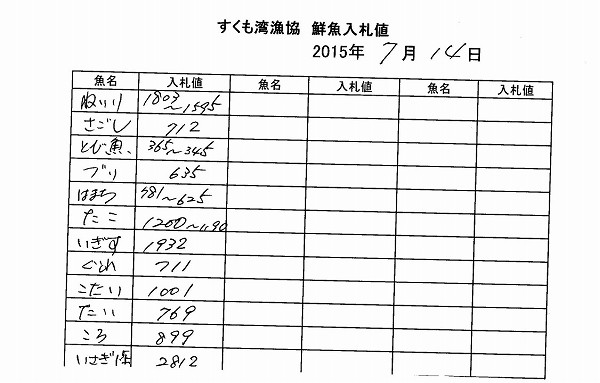 すくも湾漁協 鮮魚入札値
2015年 7月 14日
魚名 入札値 魚名 入札値 魚名 入札値
1803～1595
さごし 712
とび魚、 365～345
ブリ 635
はまち 781～625
たこ 1200～1190
いさぎ 1932
ぐれ 711
こたい 1001
たい 769
ころ 899
いさぎ 2812